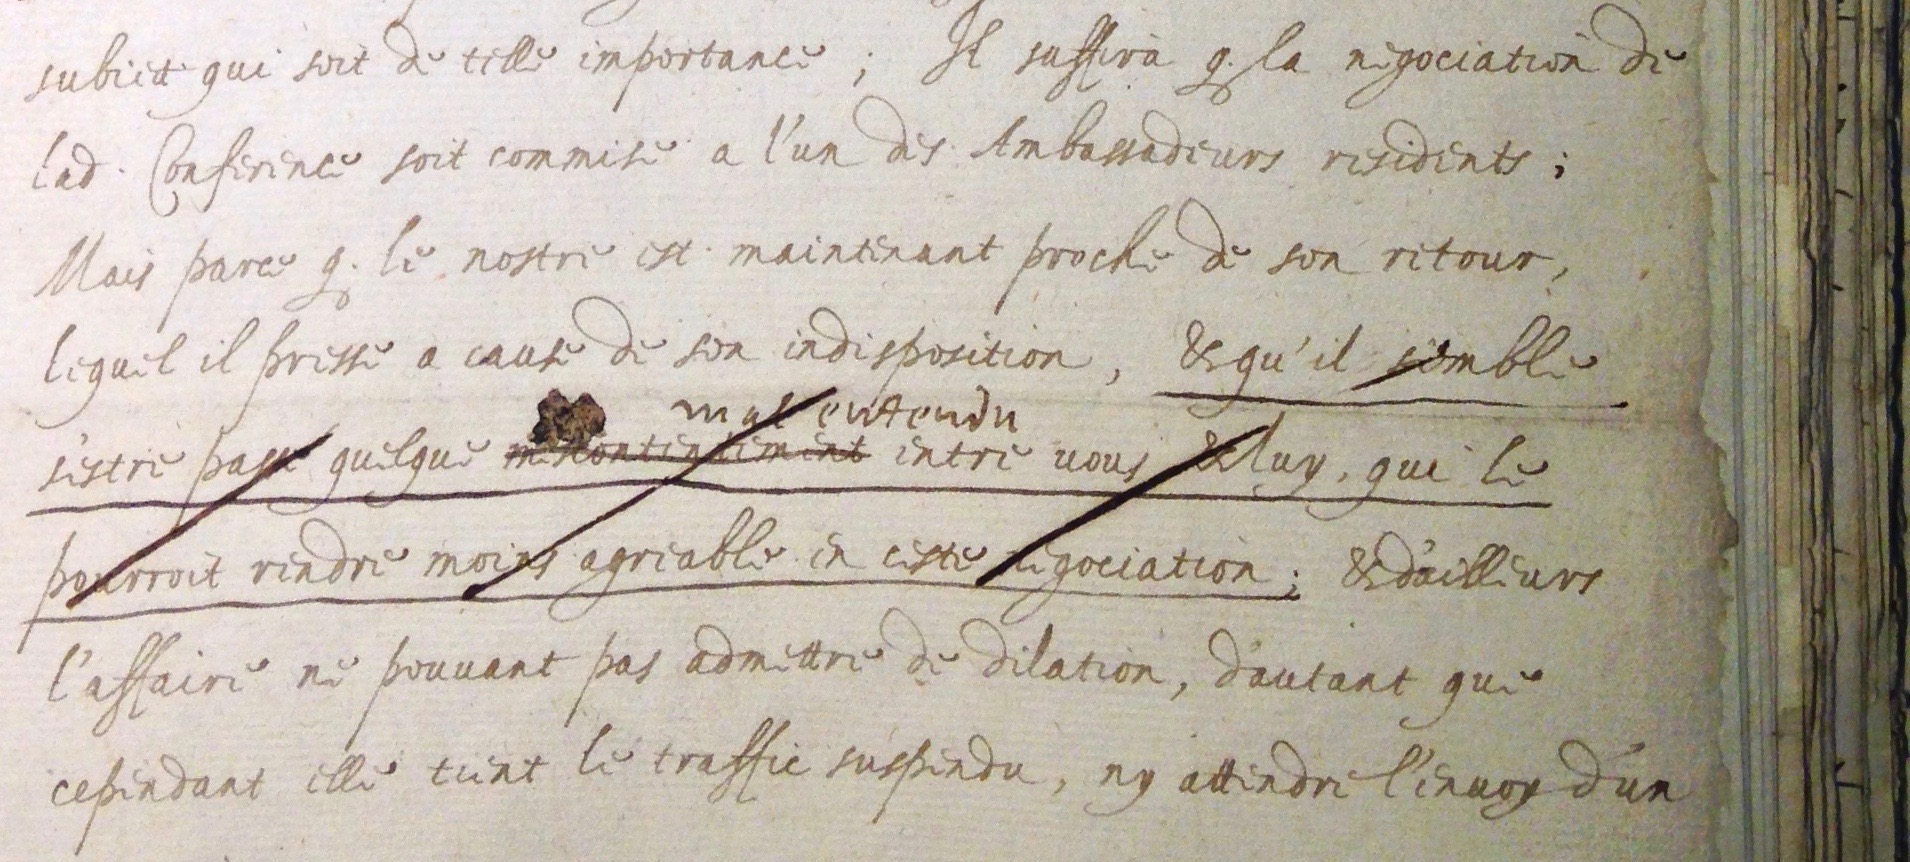 subiect qui soit de telle importance ; Il suffira q. la negociation de
lad. Conference soit commise a l'un des Ambassadeurs residents ;
Mais parce q. le nostre est maintenant proche de son retour,
lequel il presse a cause de son indisposition, & qu'il semble
mal entendu
s'estre passe quelque mescontentement entre vous & luy, qui le
pourroit rendre moins agreable en ceste negociation ; & d'ailleurs
l'affaire ne pouvant pas admettre de dilation, d'autant que
cependant elle tient le traffic suspendu, ny attendre l'envoy d'un